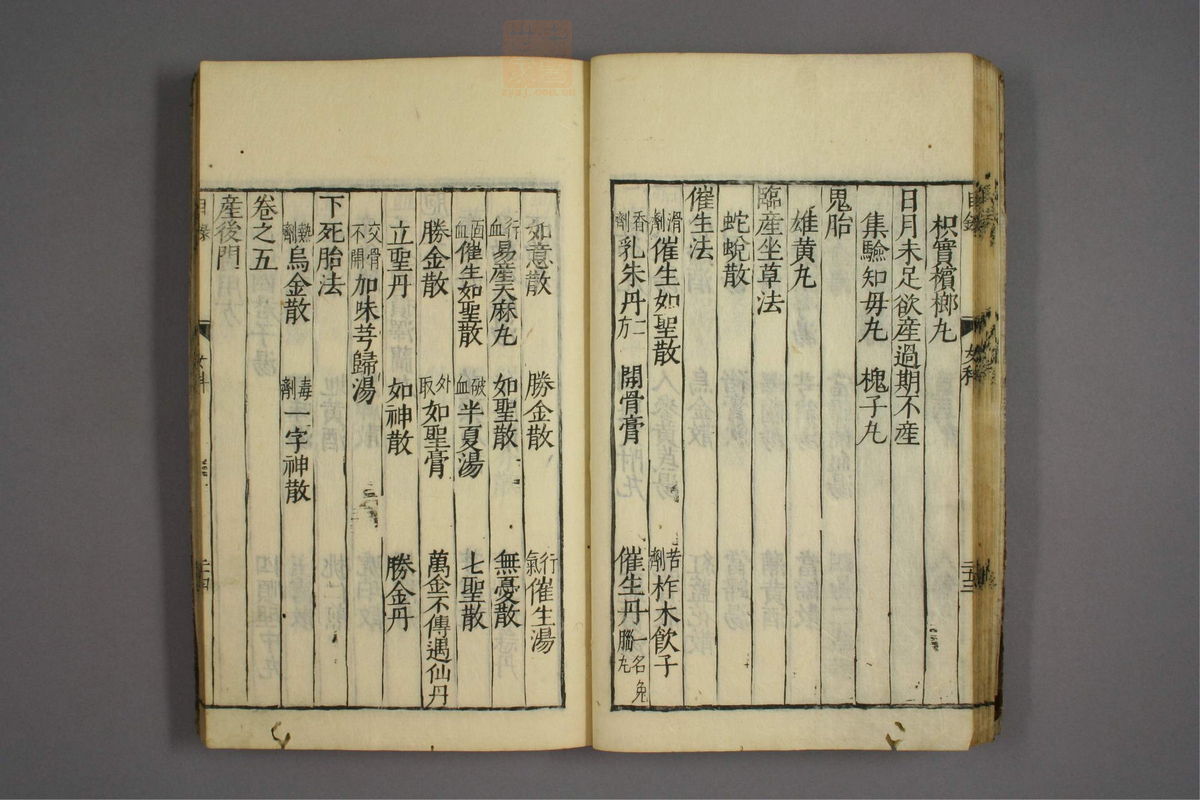 枳實檳榔丸
日月未足欲産過期不産
集驗知母丸 槐子丸
鬼胎
雄黄丸
臨産坐草法
蛇蛻散
催生法
滑劑催生如聖散 苦劑柞木飲子
香劑乳朱丹二方 開骨膏 催生丹一名兔腦丸
目錄 女科 二十三
如意散 勝金散 行氣催生湯
行血易産天麻丸 如聖散 無憂散
固血催生如聖散 破血半夏湯 七聖散
勝金散 外取如聖膏 萬金不傳遇仙丹
立聖丹 如神散 勝金丹
交骨不開加味芎歸湯
下死胎法
熱劑烏金散 毒劑一字神散
卷之五
産後門
目錄 女科 二十四